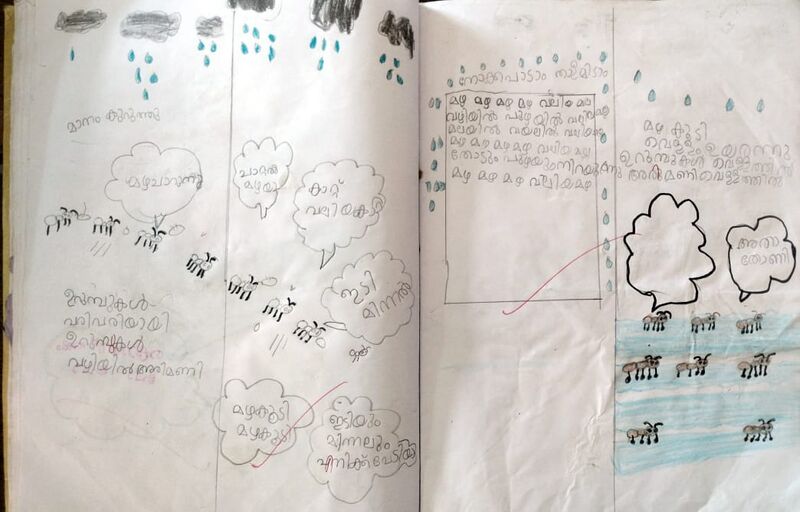 മാനം കറുത്തു
മഴചാറുന്നു
ഉറുമ്പുകൾ
വരിവരിയായി
ഉറുമ്പുകൾ
വഴിയിൽ അരിമണി
ചാറ്റൽ
മഴയു
കാറ്റ്
വലിയകാറ്റ്
ഇടി
മിന്നൽ
മഴകൂടി
മഴകൂടി
ഇടിയും
മിന്നലും
എനിക്ക് പേടിയാ
നോക്കപാടാം താളമിടാം
മഴ മഴ മഴ മഴ വലിയ മഴ
വഴിയിൽ പുഴയിൽ വലിയമഴ
മലയിൽ വയലിൽ വലിയമഴ
മഴ മഴ മഴ മഴ വലിയ മഴ
തോടും പുഴയുംനിറയുന്നു
മഴ മഴ മഴ വലിയമഴ
മഴ കൂടി
വെള്ളം ഉയരുന്നു
ഉറുമ്പുകൾ വെള്ളത്തിൽ
അരിമണിവെള്ളത്തിൽ
അതാ
തോണി